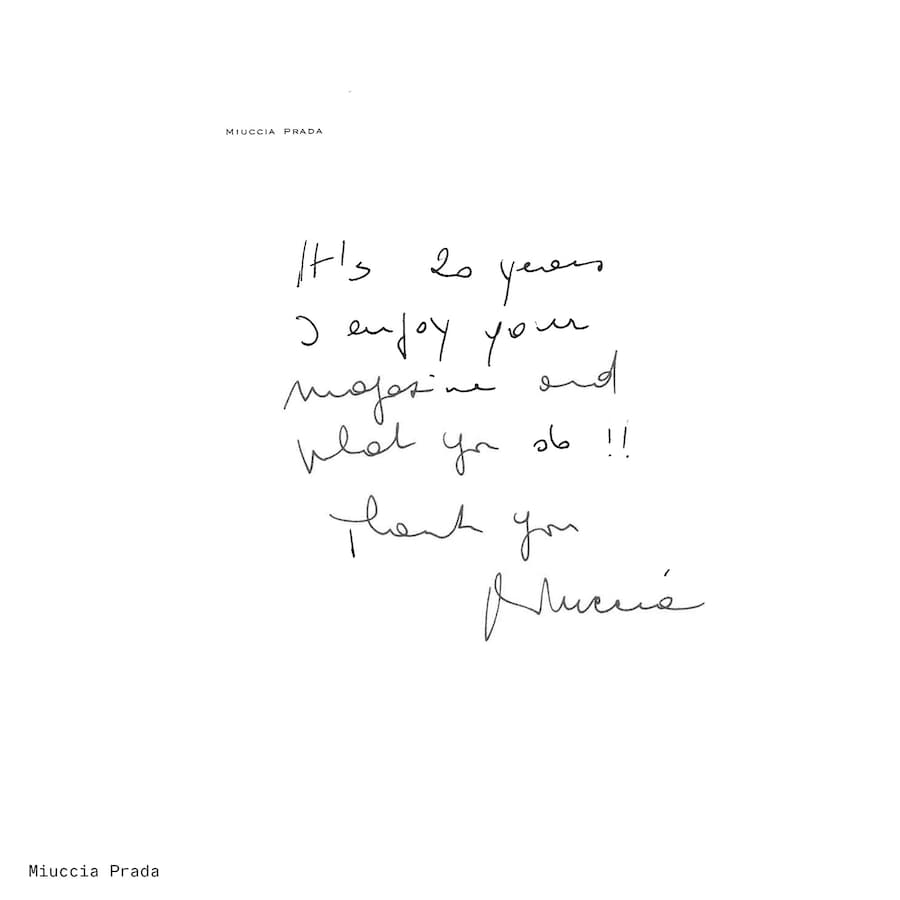 MIUCCIA PRADA
It's 20 years
I enjoy your
magazine and
what you do !!
Thank you
Miuccia
Miuccia Prada